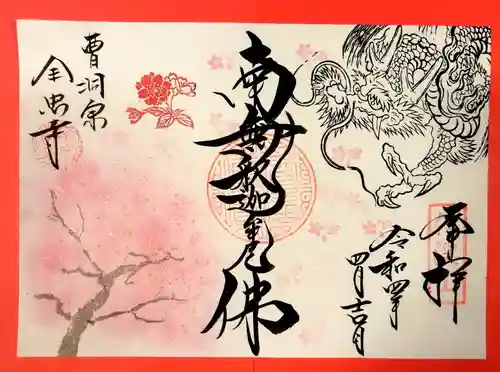 奉拝
令和四年
四月吉日
南無釈迦牟尼佛
曹洞宗
金忠寺